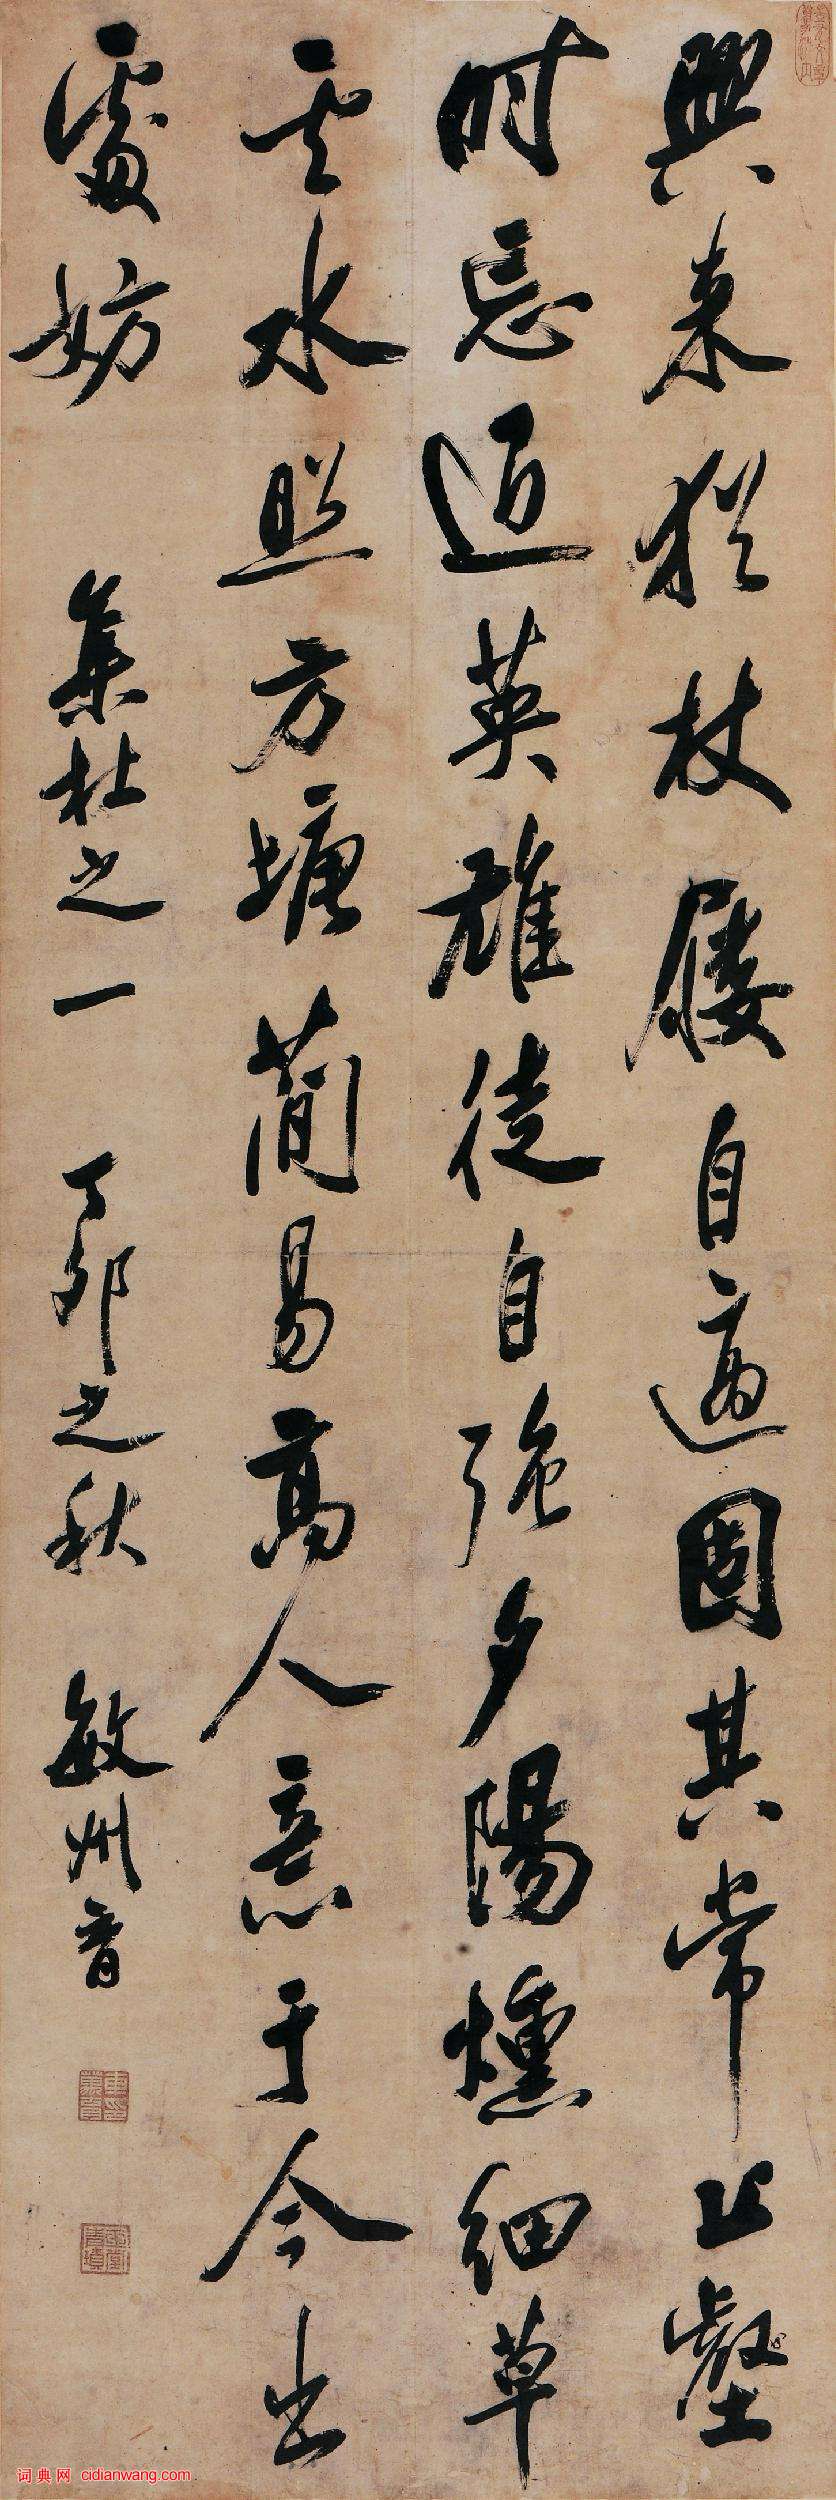 興来猶杖屨自適固其常丘壑
时忘返英雄徒自強夕陽燻細草
雲水照方塘簡易高人意于今出
處妨
集杜之一 丁卯之秋 敏州 音
词典网 cidianwang.com